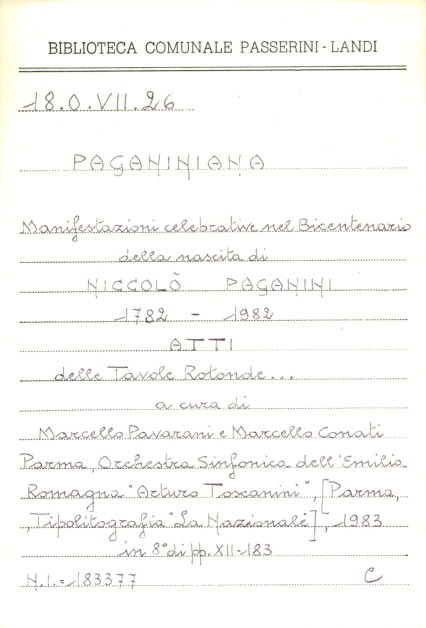 BIBLIOTECA COMUNALE PASSERINI - LANDI
18.O.VII.26
PAGANINIANA
Manifestazioni celebrative nel Bicentenario
della nascita di
NICCOLÒ PAGANINI
1782 - 1982
ATTI
delle Tavole Rotonde...
a cura di
Marcello Pavarani e Marcello Conati
Parma, Orchestra Sinfonica dell'Emilia
Romagna "Arturo Toscanini", [Parma,
, Tipolitografia "La Nazionale"], 1983
in 8° di pp. XII-183
N.I.=183377 C